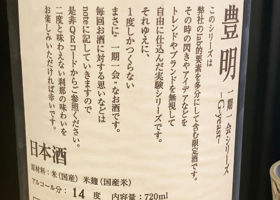 豊明
一期一会シリーズ
-G-yeast-
このシリーズは
弊社のlab的要素を多分にして含む限定酒です。
その時の閃きやアイデアなどを
トレンドやブランドを無視して
自由に仕込んだ実験シリーズです。
それゆえに、
1度しかつくらない
まさに、一期一会、なお酒です。
毎回お酒に対する思いなどは
noteに記していきますので
是非QRコードからご参照ください。
二度と味わえない刹那の味わいを
お楽しみいただければ幸いです。
日本酒
原材料:米(国産)米麹(国産米)
アルコール分:14度 内容量:720ml